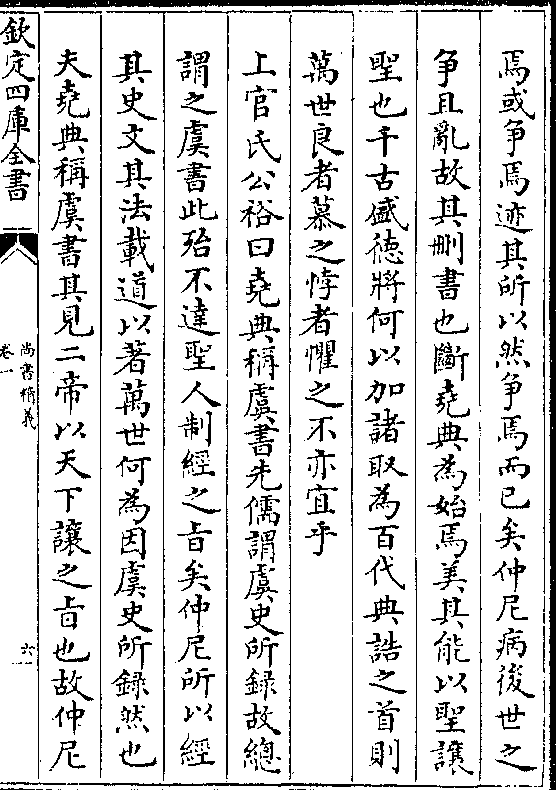 焉或爭焉迹其所以然爭焉而已矣仲尼病後世之
爭且亂故其刪書也斷堯典為始焉美其能以聖讓
聖也千古盛徳將何以加諸取為百代典誥之首則
萬世良者慕之悖者懼之不亦宜乎
上官氏公裕曰堯典稱虞書先儒謂虞史所録故總
謂之虞書此殆不達聖人制經之㫖矣仲尼所以經
其史文其法載道以著萬世何為因虞史所録然也
夫堯典稱虞書其見二帝以天下讓之㫖也故仲尼
欽定四庫全書
尚書精義
卷一
六